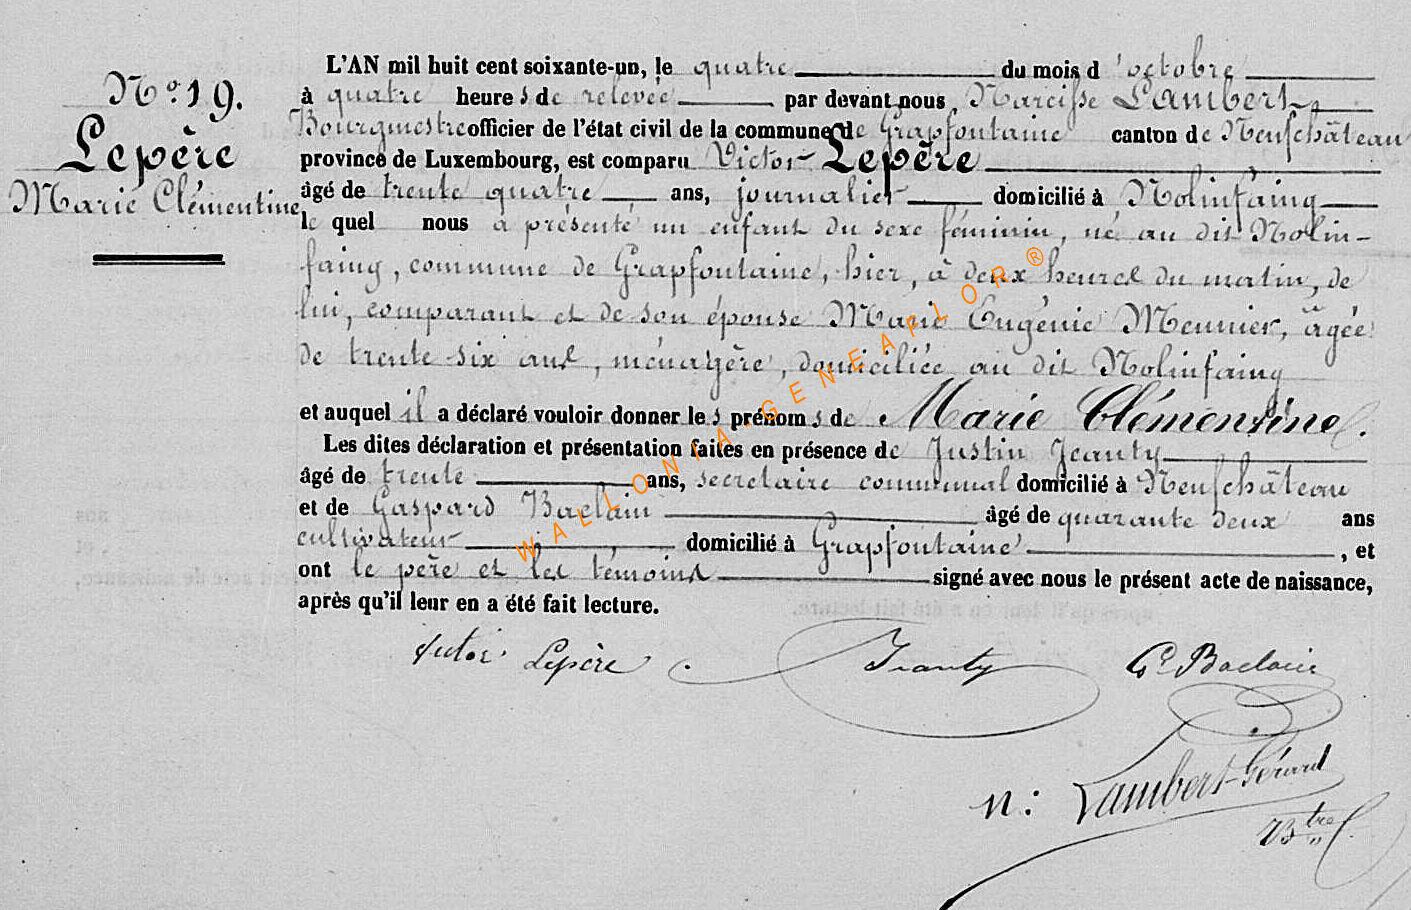 N.° 19.
Lepère
Marie Clémentine
L'AN mil huit cent soixante-un, le quatre du mois d'octobre
à quatre heures de relevée par devant nous, Narcisse Lambert,
Bourgmestre officier de l'état civil de la commune de Grapfontaine canton de Neufchâteau
province de Luxembourg, est comparu Victor Lepère
âgé de trente quatre ans, journalier domicilié à Nolinfaing
le quel nous a présenté un enfant du sexe féminin, né au dit Nolin-
faing, commune de Grapfontaine, hier, à deux heures du matin, de
lui, comparant et de son épouse Marie Eugénie Meunier, âgée
de trente six ans, ménagère, domiciliée au dit Nolinfaing
et auquel il a déclaré vouloir donner les prénoms de Marie Clémentine.
Les dites déclaration et présentation faites en présence de Justin Jeanty
âgé de trente ans, secretaire communal domicilié à Neufchâteau
et de Gaspard Baclain âgé de quarante deux ans
cultivateur domicilié à Grapfontaine, et
ont le père et les témoins signé avec nous le présent acte de naissance,
après qu'il leur en a été fait lecture.
Lepère Jeanty
N: Lambert-Gérard
Btre
WALLONIA-GENEAPLOR®